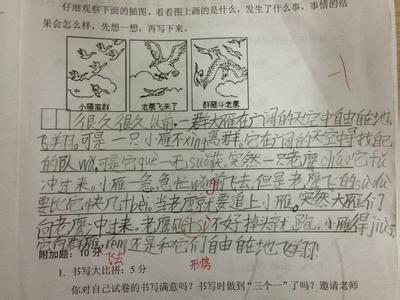 仔细观察下面的插图，看看图上画的是什么，发生了什么事，事情的结
果会怎么样。先想一想，再写下来。
小雁离群
老鹰飞来了
群雁斗老鹰
-1
很久很久以前一群大雁在广阔的天空中自由自在地
飞翔。可是一只小雁不xing离群。它在广阔的天空寻找自己
的队wǔ，可是它què一无suǒ获。突然一只老鹰cháo它
冲过来。小雁一急，急忙wǎng前飞去，但是老鹰飞的sùdù
要比它快几十bèi。当老鹰就要追上小雁。突然大雁们
向老鹰冲过来。老鹰见形shì不好掉头就跑。小雁得jiù
飞去
附加题：10分
形势
1. 书写大比拼：5 分
你对自己试卷的书写满意吗？书写时做到“三个一”了吗？邀请老师